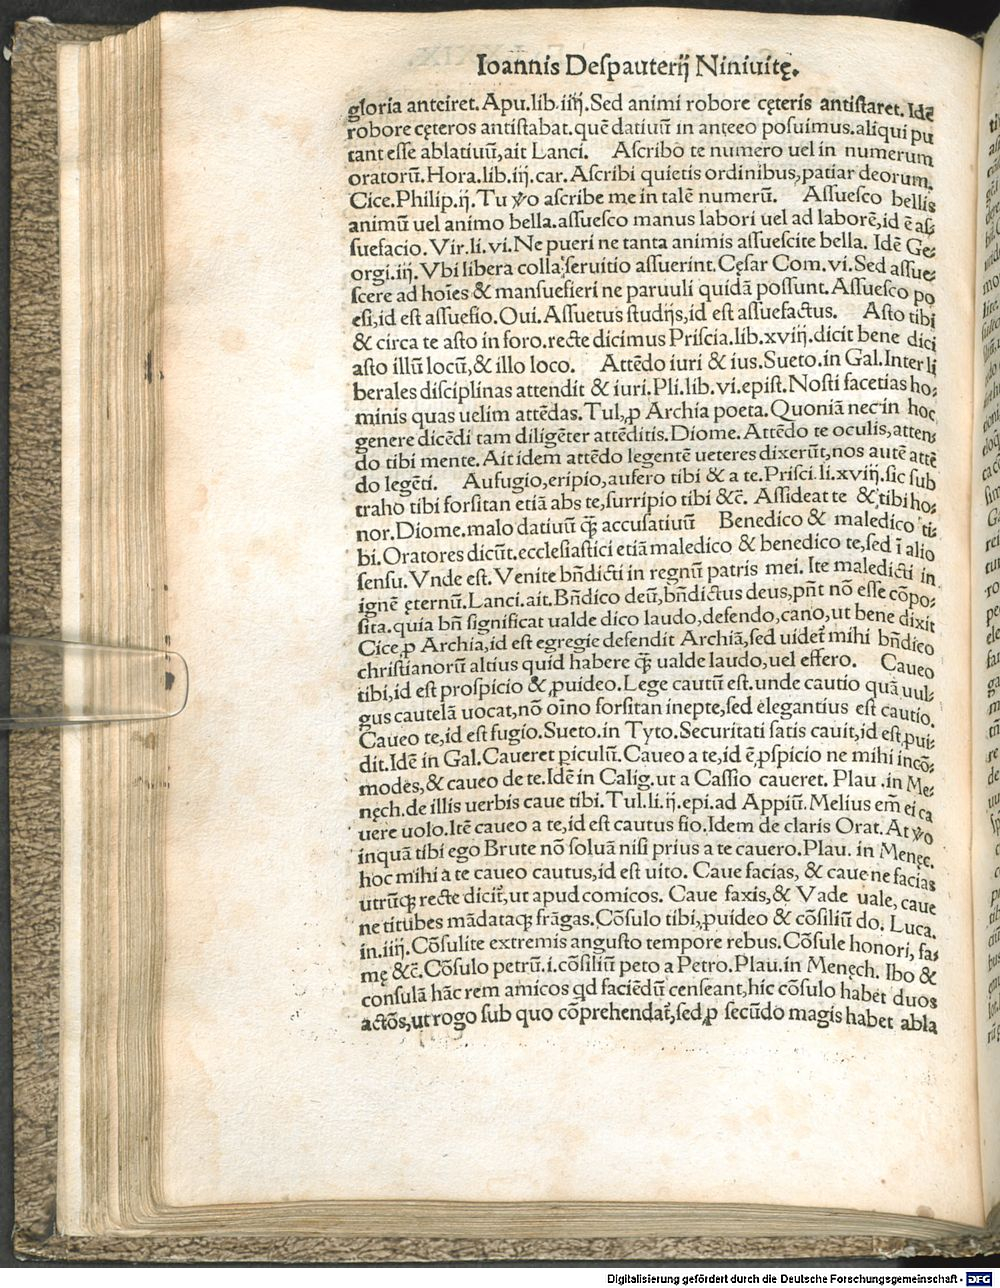 Ioannis Deſpauterĳ Niniuitę.
gloria anteiret. Apu.lib.iiĳ.Sed animi robore cęteris antiſtaret. Idē
robore cęteros antiſtabat.quē datiuū in anteeo poſuimus.aliqui pu
tant eſſe ablatiuū,ait Lanci. Aſcribo te numero uel in numerum
oratorū.Hora.lib.iĳ.car.Aſcribi quietis ordinibus,patiar deorum.
Cice.Philip.ĳ.Tu ꝟo aſcribe me in talē numerū. Aſſueſco bellis
animū uel animo bella.aſſueſco manus labori uel ad laborē,id ē aſ⸗
ſuefacio.Vir.li.vi.Ne pueri ne tanta animis aſſueſcite bella. Idē Ge⸗
orgi.iĳ.Vbi libera colla ſeruitio aſſuerint.Cęſar Com.vi.Sed aſſue⸗
ſcere ad hoīes & manſuefieri ne paruuli quidā poſſunt.Aſſueſco po
eſi,id eſt aſſuefio.Oui.Aſſuetus ſtudĳs,id eſt aſſuefactus. Aſto tibi
& circa te aſto in foro.recte dicimus Priſcia.lib.xviĳ.dicit bene dici
aſto illū locū,& illo loco. Attēdo iuri & ius.Sueto.in Gal.Inter li
berales diſciplinas attendit & iuri.Pli.lib.vi.epiſt.Noſti facetias ho⸗
minis quas uelim attēdas.Tul,ꝓ Archia poeta.Quoniā nec in hoc
genere dicēdi tam diligēter attēditis.Diome.Attēdo te oculis,atten⸗
do tibi mente.Ait idem attēdo legentē ueteres dixerūt,nos autē attē
do legēti. Aufugio,eripio,aufero tibi & a te.Priſci.li.xviĳ.ſic ſub
traho tibi forſitan etiā abs te,ſurripio tibi &c̄. Aſſideat te & tibi ho⸗
nor.Diome.malo datiuū ꝙ̄ accuſatiuū Benedico & maledico ti⸗
bi.Oratores dicūt.eccleſiaſtici etiā maledico & benedico te,ſed ī alio
ſenſu.Vnde eſt.Venite bn̄dicti in regnū patris mei.Ite maledicti in
ignē ęternū.Lanci.ait.Bn̄dico deū,bn̄dictus deus,pn̄t nō eſſe cōpo⸗
ſita.quia bn̄ ſignificat ualde dico laudo,defendo,cano,ut bene dixit
Cice,ꝓ Archia,id eſt egregie defendit Archiā,ſed uidet᷑ mihi bn̄dico
chriſtianorū altius quid habere ꝙ̄ ualde laudo,uel effero. Caueo
tibi,id eſt proſpicio & ꝓuideo.Lege cautū eſt.unde cautio quā uul⸗
gus cautelā uocat,nō oīno forſitan inepte,ſed elegantius eſt cautio.
Caueo te,id eſt fugio.Sueto.in Tyto.Securitati ſatis cauit,id eſt ꝓui⸗
dit.Idē in Gal.Caueret ꝑiculū.Caueo a te,id ē ꝓſpicio ne mihi incō⸗
modes,& caueo de te.Idē in Calig.ut a Caſſio caueret. Plau.in Me⸗
nęch.de illis uerbis caue tibi.Tul.li.ĳ.epi.ad Appiū.Melius em̄ ei ca
uere uolo.Itē caueo a te,id eſt cautus fio.Idem de claris Orat.At ꝟo
inquā tibi ego Brute nō ſoluā niſi prius a te cauero.Plau. in Menęc.
hoc mihi a te caueo cautus,id eſt uito. Caue facias, & caue ne facias
utrūqꝫ recte dicit᷑,ut apud comicos. Caue faxis,& Vade uale, caue
ne titubes mādataqꝫ frāgas.Cōſulo tibi,ꝓuideo & cōſiliū do. Luca.
in.iiĳ.Cōſulite extremis anguſto tempore rebus.Cōſule honori, fa⸗
mę &c̄.Cōſulo petrū.i.cōſiliū peto a Petro.Plau.in Menęch. Ibo &
conſulā hāc rem amicos qd faciēdū cenſeant,hic cōſulo habet duos
actōs,ut rogo ſub quo cōprehendat᷑,ſed,ꝓ ſecūdo magis habet abla
Digitalisierung gefördert durch die Deutsche Forschungsgemeinschaft - DFG